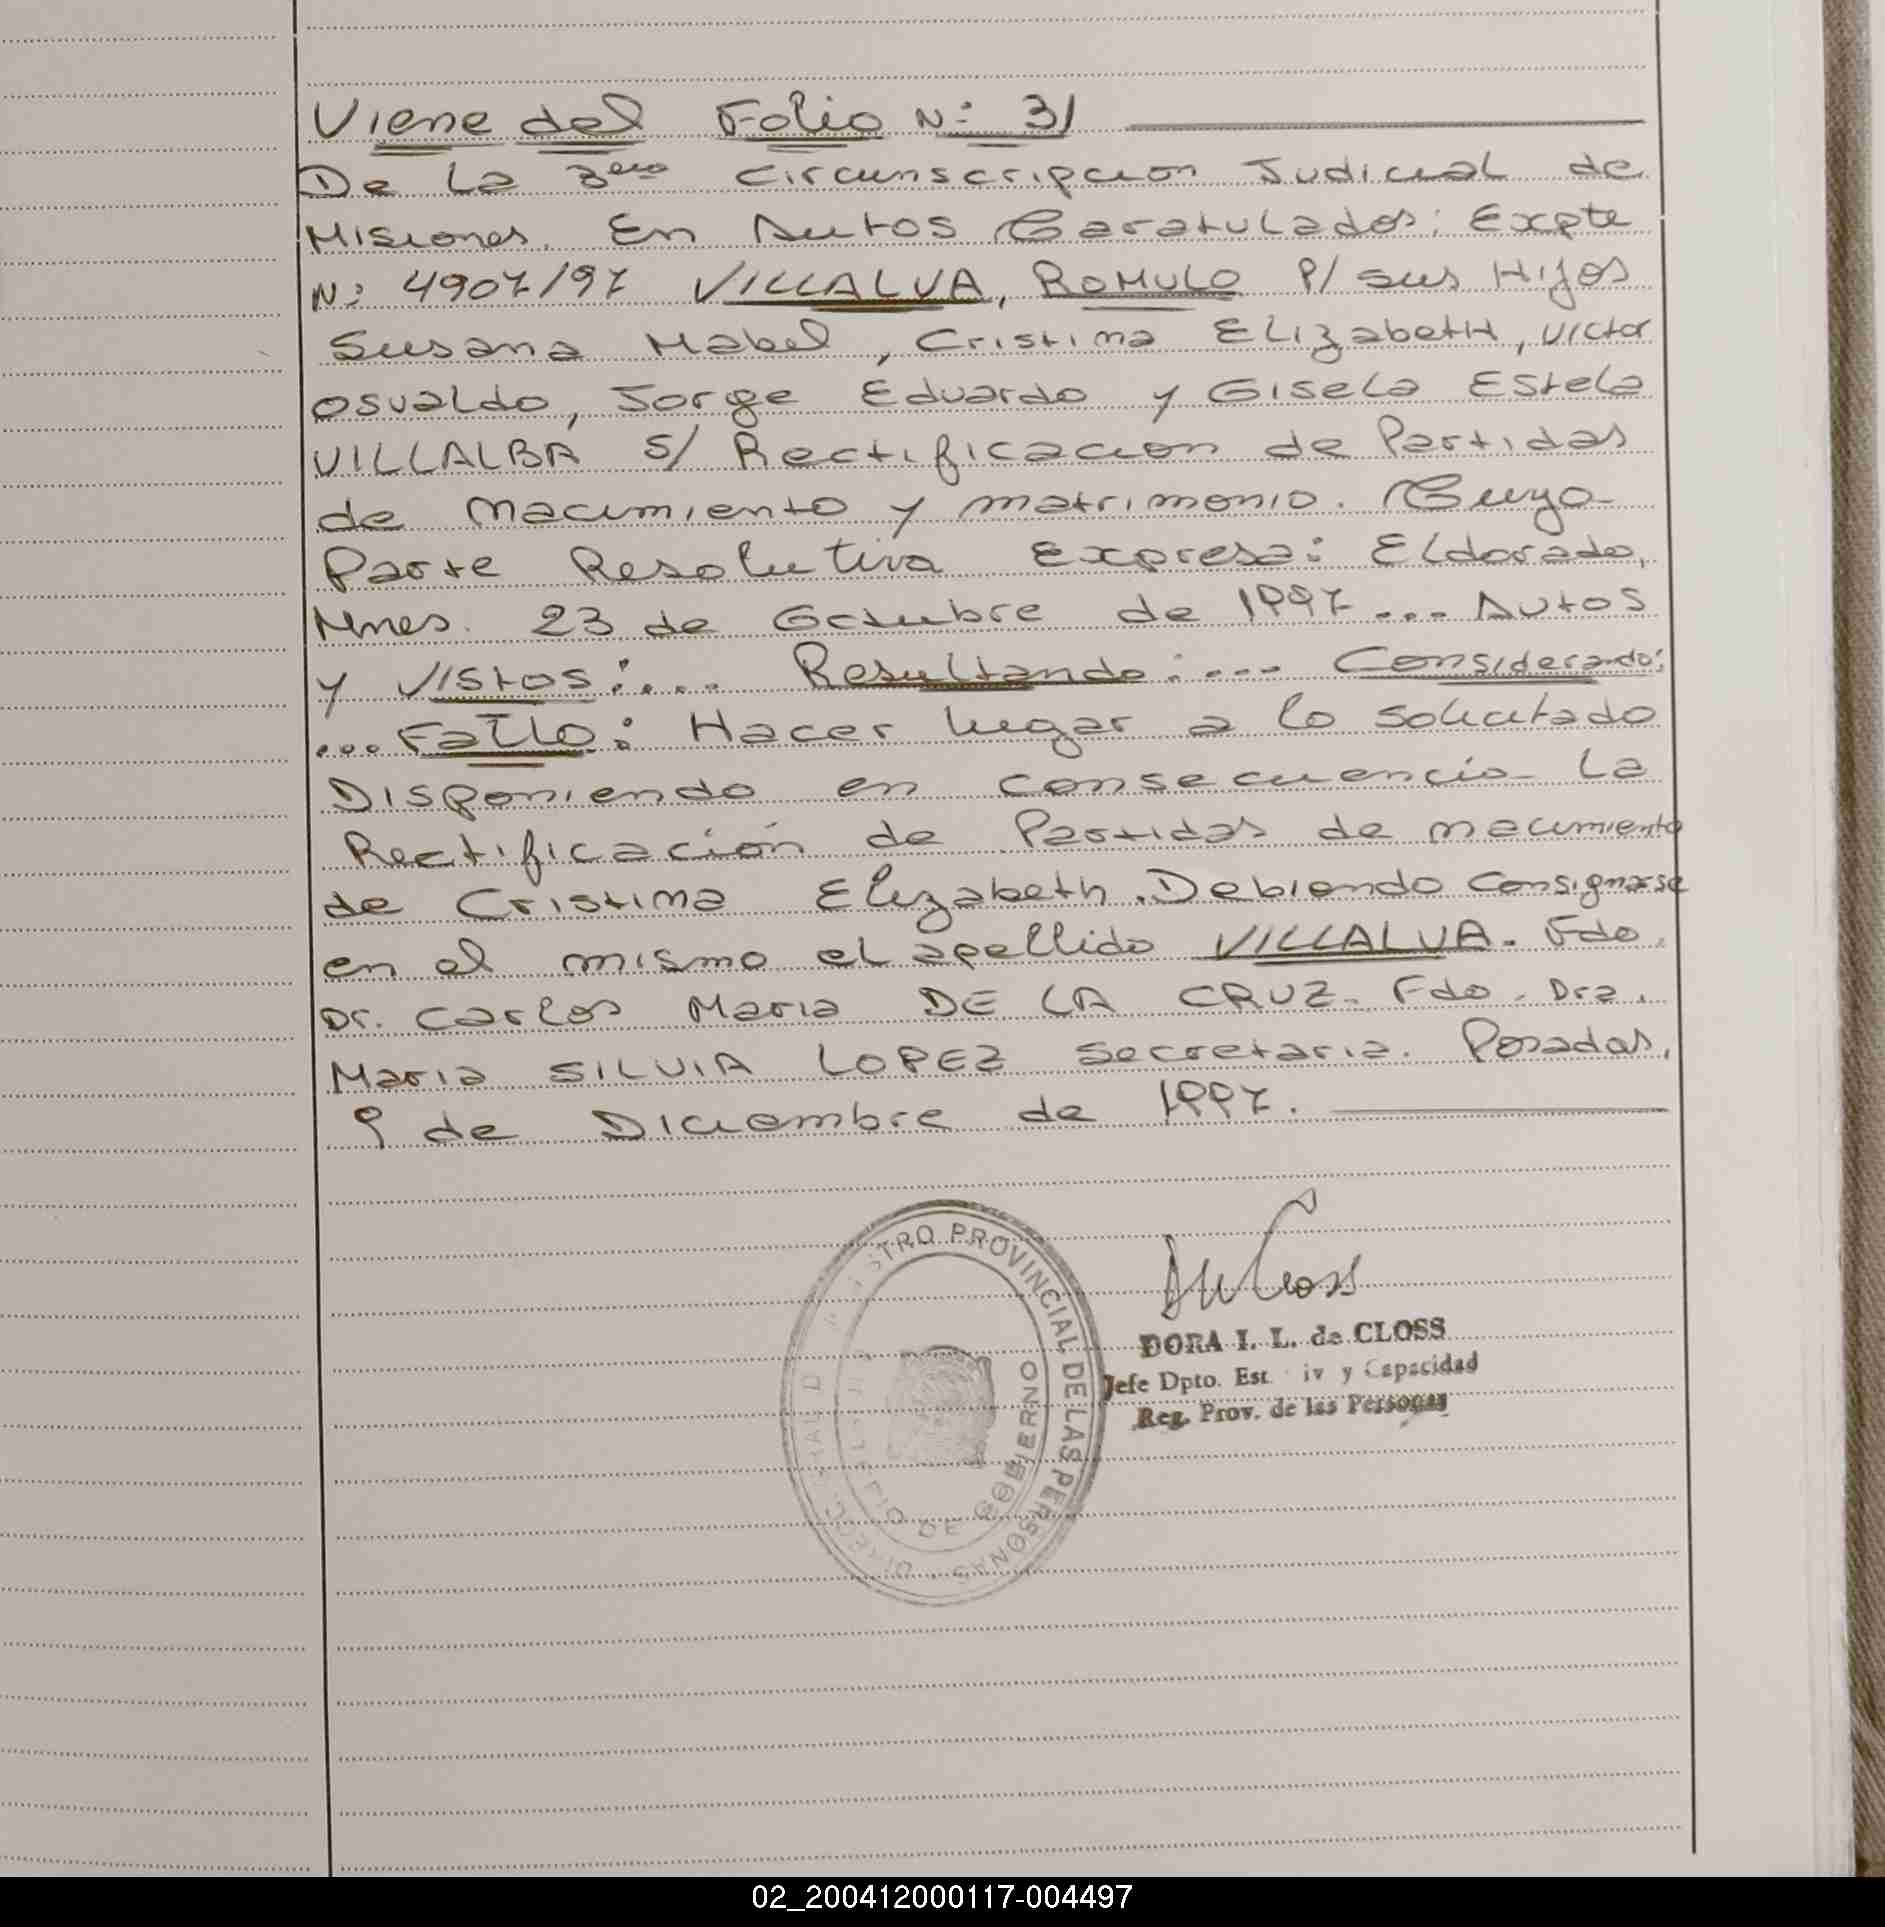 Viene del Folio N: 31
De La 3era Circunscripcion Judicial de
Misiones. En Autos Caratulados: Expte
N: 4907/97 VILLALVA, ROMULO P/ sus Hijos
Susana Mabel, Cristina ELizabetH, Victor
Osvaldo, Jorge Eduardo y Gisela Estela
VILLALBA S/ Rectificacion de Partidas
de nacimiento y matrimonio. Cuyo
Parte Resolutiva Expresa: Eldorado,
Mnes. 23 de Octubre de 1997... Autos
y Vistos:... Resultando:... Considerando:
... Fallo: Hacer lugar a lo solicitado
Disponiendo en consecuencia La
Rectificación de Partidas de nacimiento
de Cristina Elizabeth. Debiendo Consignarse
en el mismo el apellido VILLALVA. Fdo.
Dr. Carlos Maria DE LA CRUZ. Fdo. Dra.
Maria SILVIA LOPEZ Secretaria. Posadas,
9 de Diciembre de 1997.
DORA I. L. de CLOSS
Jefe Dpto. Est iv y Capacidad
Reg. Prov. de las Personas
PROVINCIAL DE LAS PERSONAS
DE GOBIERNO
02_200412000117-004497